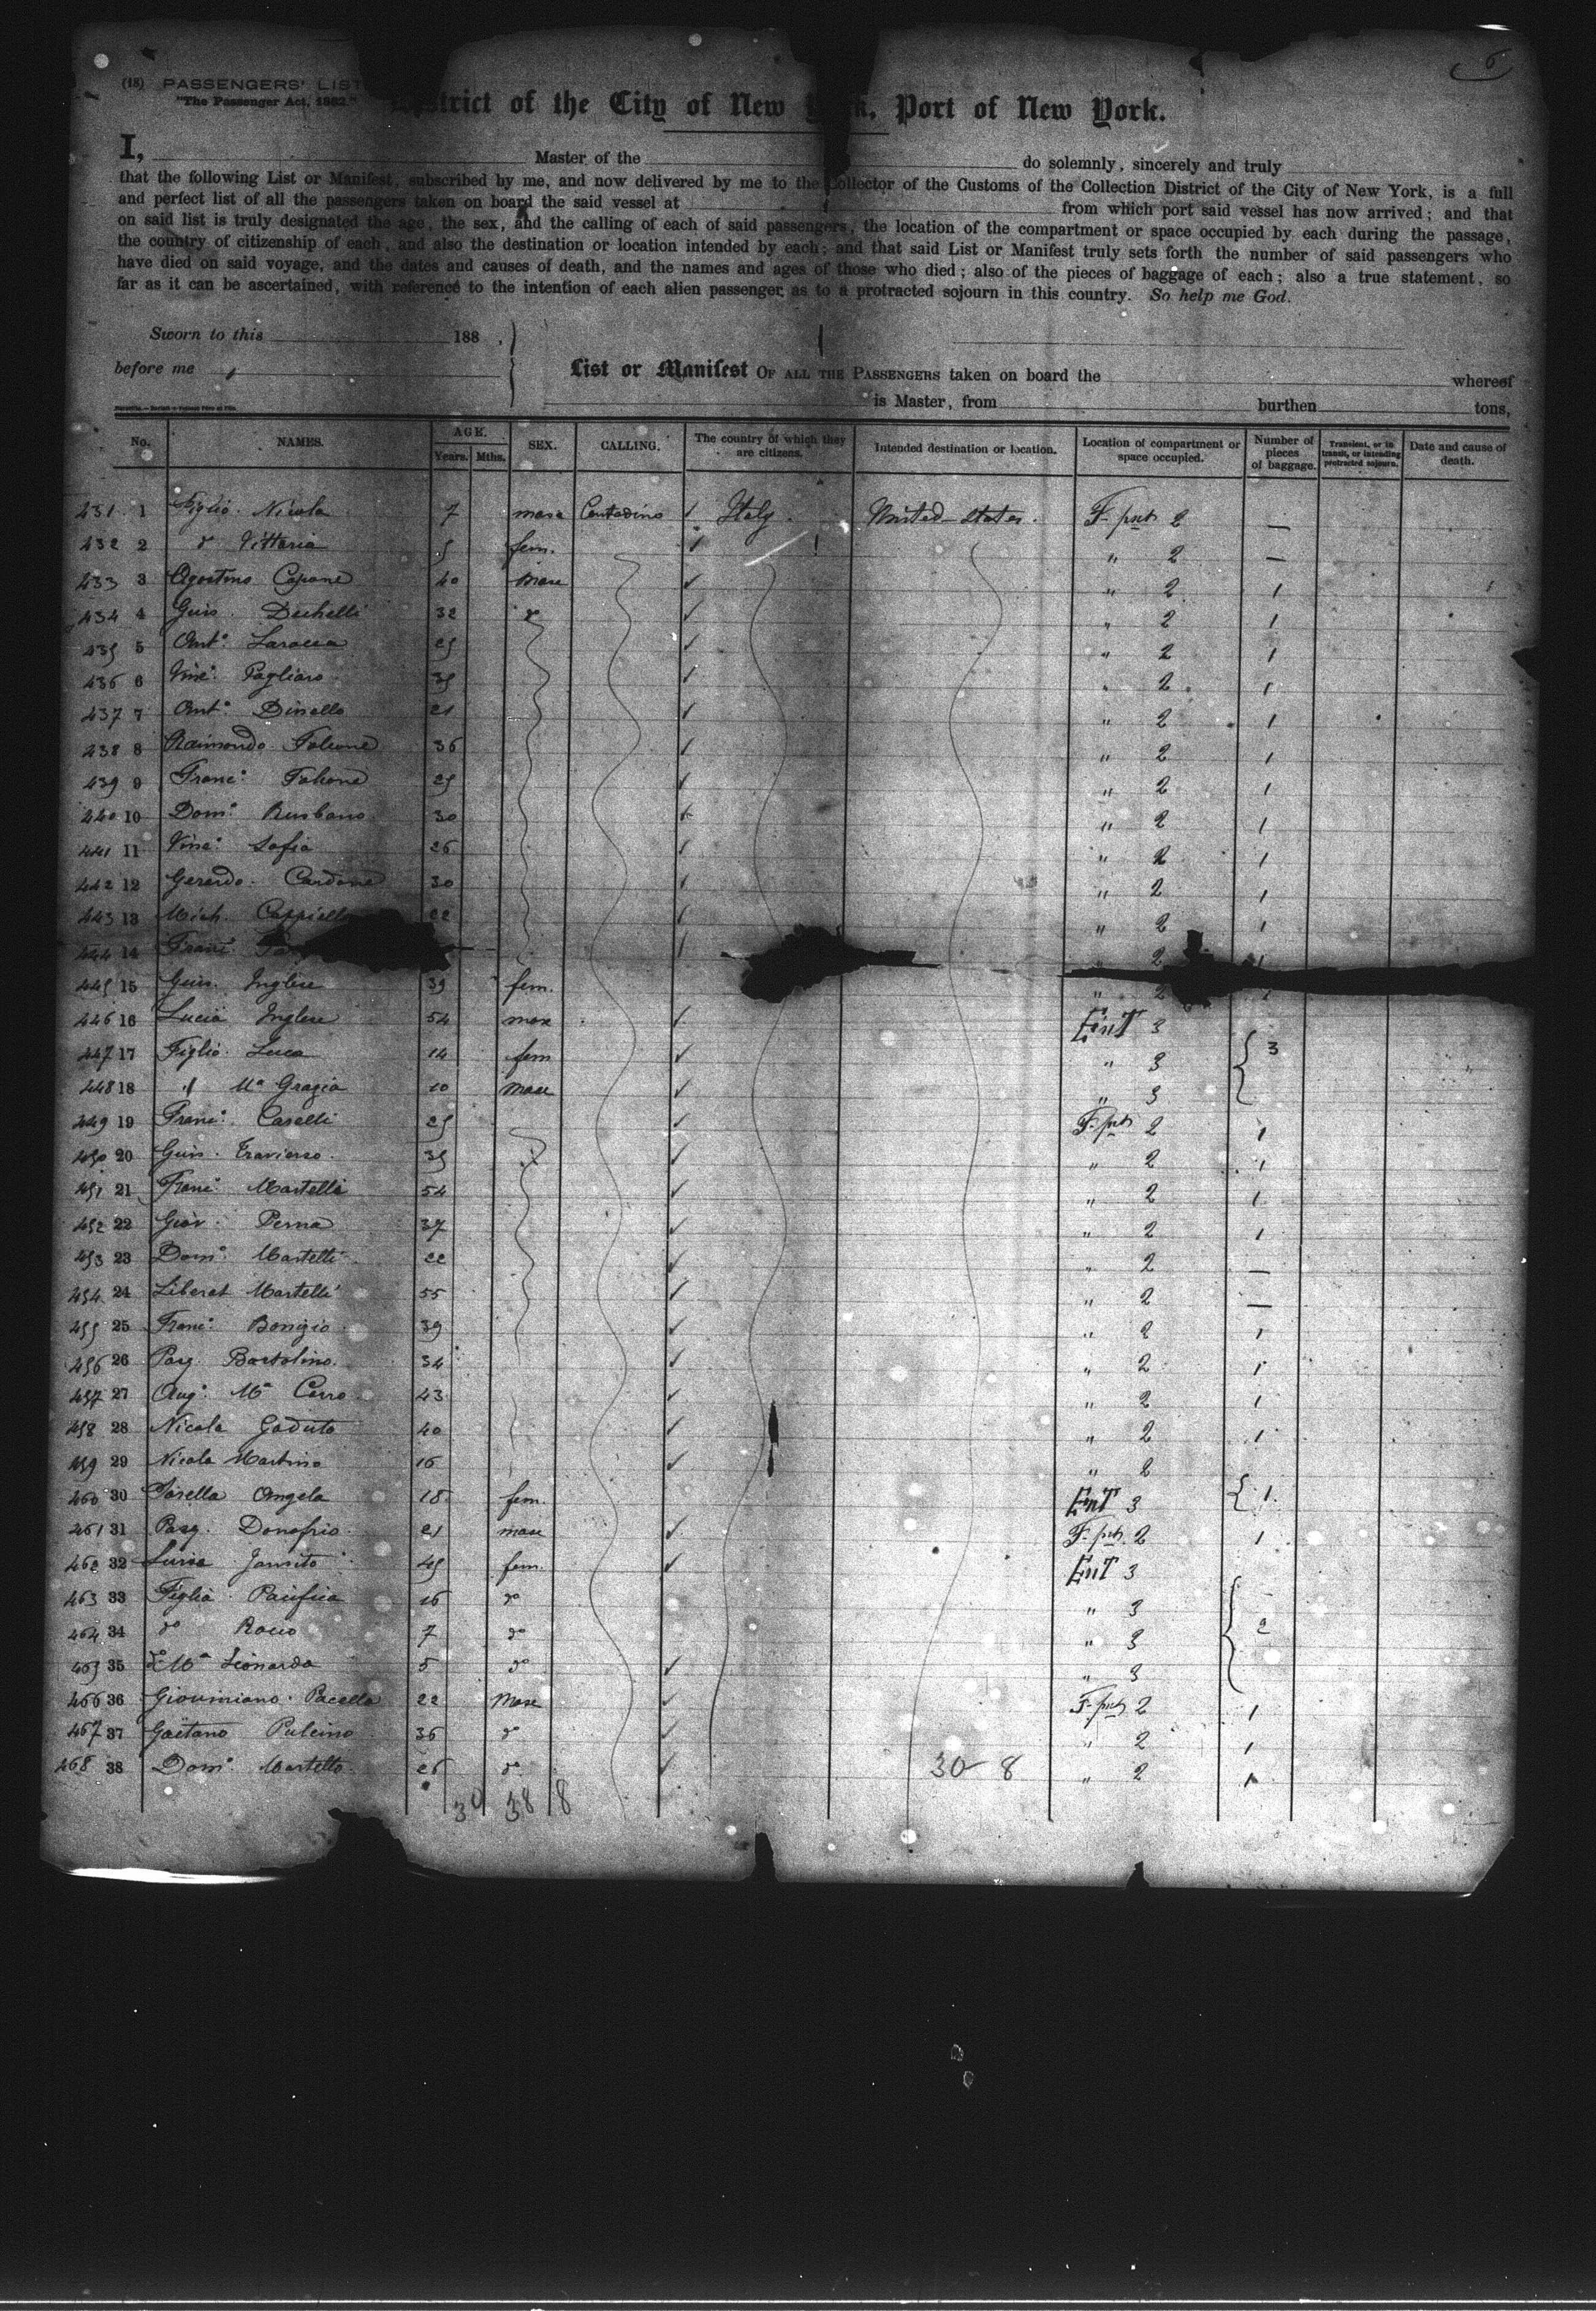 6
(18) PASSENGERS' LIST
"The Passenger Act, 1882."
District of the City of New York, Port of New York.
I, Master of the do solemnly, sincerely and truly
that the following List or Manifest, subscribed by me, and now delivered by me to the Collector of the Customs of the Collection District of the City of New York, is a full
and perfect list of all the passengers taken on board the said vessel at from which port said vessel has now arrived; and that
on said list is truly designated the age, the sex, and the calling of each of said passengers, the location of the compartment or space occupied by each during the passage,
the country of citizenship of each, and also the destination or location intended by each; and that said List or Manifest truly sets forth the number of said passengers who
have died on said voyage, and the dates and causes of death, and the names and ages of those who died; also of the pieces of baggage of each; also a true statement, so
far as it can be ascertained, with reference to the intention of each alien passenger as to a protracted sojourn in this country. So help me God.
Sworn to this 188 ,
before me
List or Manifest OF ALL THE PASSENGERS taken on board the whereof
is Master, from burthen tons,
No. NAMES. AGE. Years. Mths. SEX. CALLING. The country of which they are citizens. Intended destination or location. Location of compartment or space occupied. Number of pieces of baggage. Transient, or in transit, or intending protracted sojourn. Date and cause of death.
431 1 Figlio Nicola 7 masc Contadino Italy United States. 2 —
432 2 do Vittoria 5 fem. " 2 —
433 3 Agostino Capone 40 masc " 2 1
434 4 Gius. 32 do " 2 1
435 5 Anto Larocca 25 " 2 1
436 6 Vinc. Pagliaro 35 " 2 1
437 7 Anto Dinello 21 " 2 1
438 8 Raimondo Falcone 36 " 2 1
439 9 Franc. Falcone 25 " 2 1
440 10 Domo 30 " 2 1
441 11 Vinc. Sofia 26 " 2 1
442 12 Gerardo Cardone 30 " 2 1
443 13 Mich. Cappiello 22 " 2 1
444 14 Franc. 2 1
445 15 Gius. Inglese 39 fem. " 2 1
446 16 Lucia Inglese 54 masc Ent 3
447 17 Figlio Luca 14 fem " 3 3
448 18 " Ma Grazia 10 masc " 3
449 19 Franc. Caselli 25 2 1
450 20 Gius. Travierso 35 " 2 1
451 21 Franc. Martelli 54 " 2 1
452 22 Giov. Perna 37 " 2 1
453 23 Domo Martelli 22 " 2 —
454 24 Liberat Martelli 55 " 2 —
455 25 Franc. Bonizio 39 " 2 1
456 26 Pasq. Bortolino. 34 " 2 1
457 27 Ang. Ma Carro 43 " 2 1
458 28 Nicola Gaduto 40 " 2 1
459 29 Nicola Martino 16 " 2
460 30 Angela 18 fem. Ent 3 1
461 31 Pasq. Donofrio 21 masc 2 1
462 32 Luisa 45 fem. Ent 3
463 33 Figlia Pacifica 16 do " 3
464 34 do Rocco 7 do " 3 2
465 35 do Ma Leonarda 5 do " 3
466 36 Gioviniano Pacella 22 Masc 2 1
467 37 Gaetano Pulcino 36 do " 2 1
468 38 Domo Martello 26 do 30 8 " 2 1
30 38 8